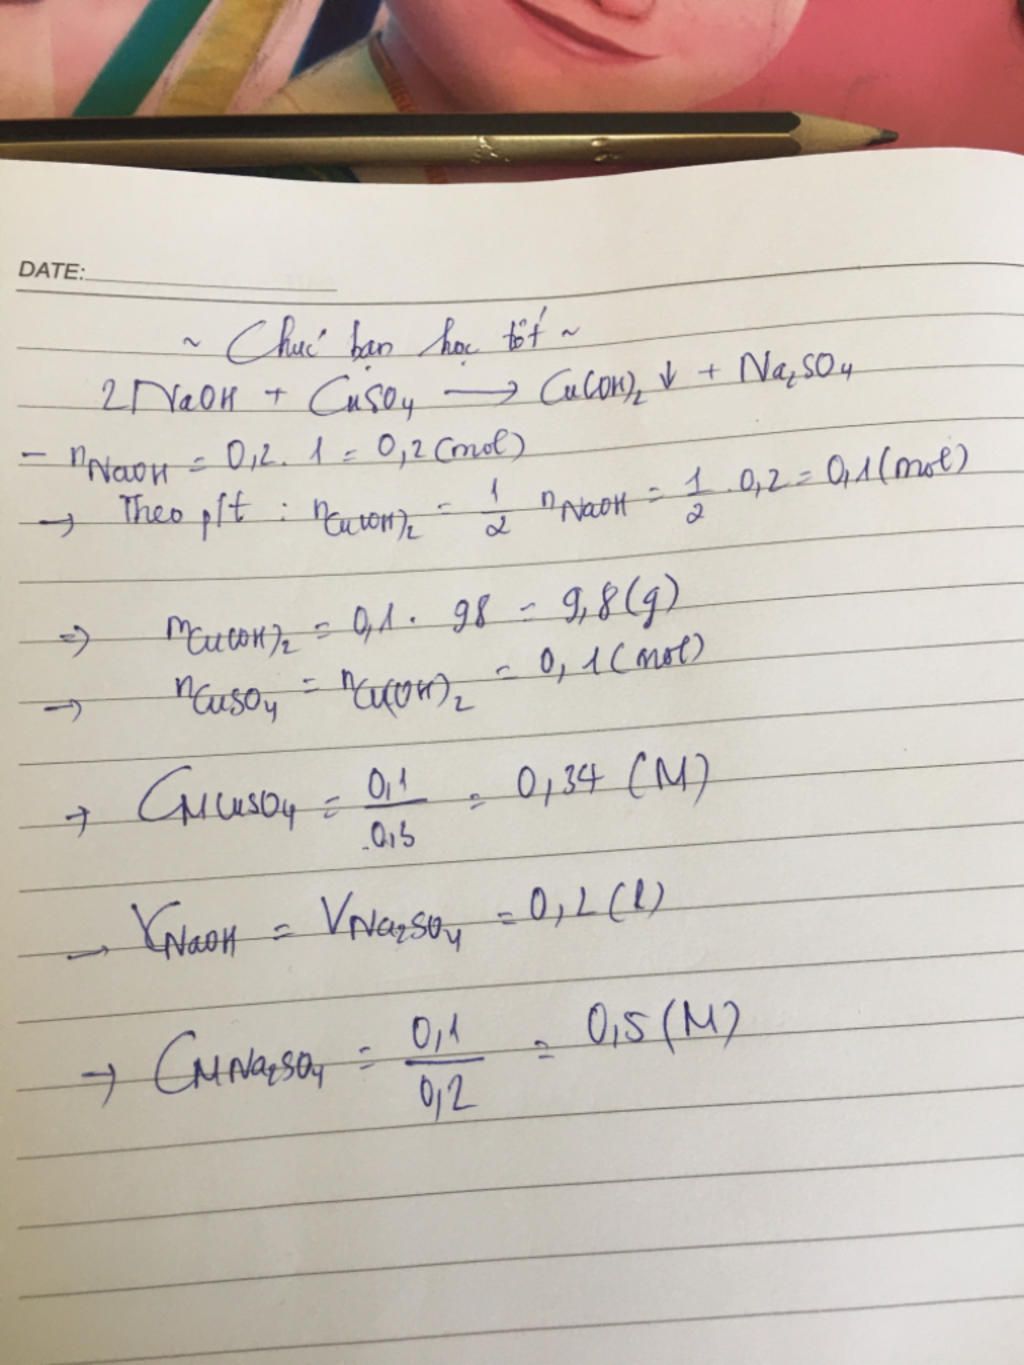 DATE:
~ Chúc bạn học tốt ~
2NaOH + CuSO4 → Cu(OH)2 ↓ + Na2SO4
- nNaOH = 0,2 . 1 = 0,2 (mol)
→ Theo p/t : nCu(OH)2 = 1/2 nNaOH = 1/2 . 0,2 = 0,1 (mol)
⇒ mCu(OH)2 = 0,1 . 98 = 9,8 (g)
→ nCuSO4 = nCu(OH)2 = 0,1 (mol)
→ CMCuSO4 = 0,1/0,3 = 0,34 (M)
→ VNaOH = VNa2SO4 = 0,2 (l)
→ CMNa2SO4 = 0,1/0,2 = 0,5 (M)